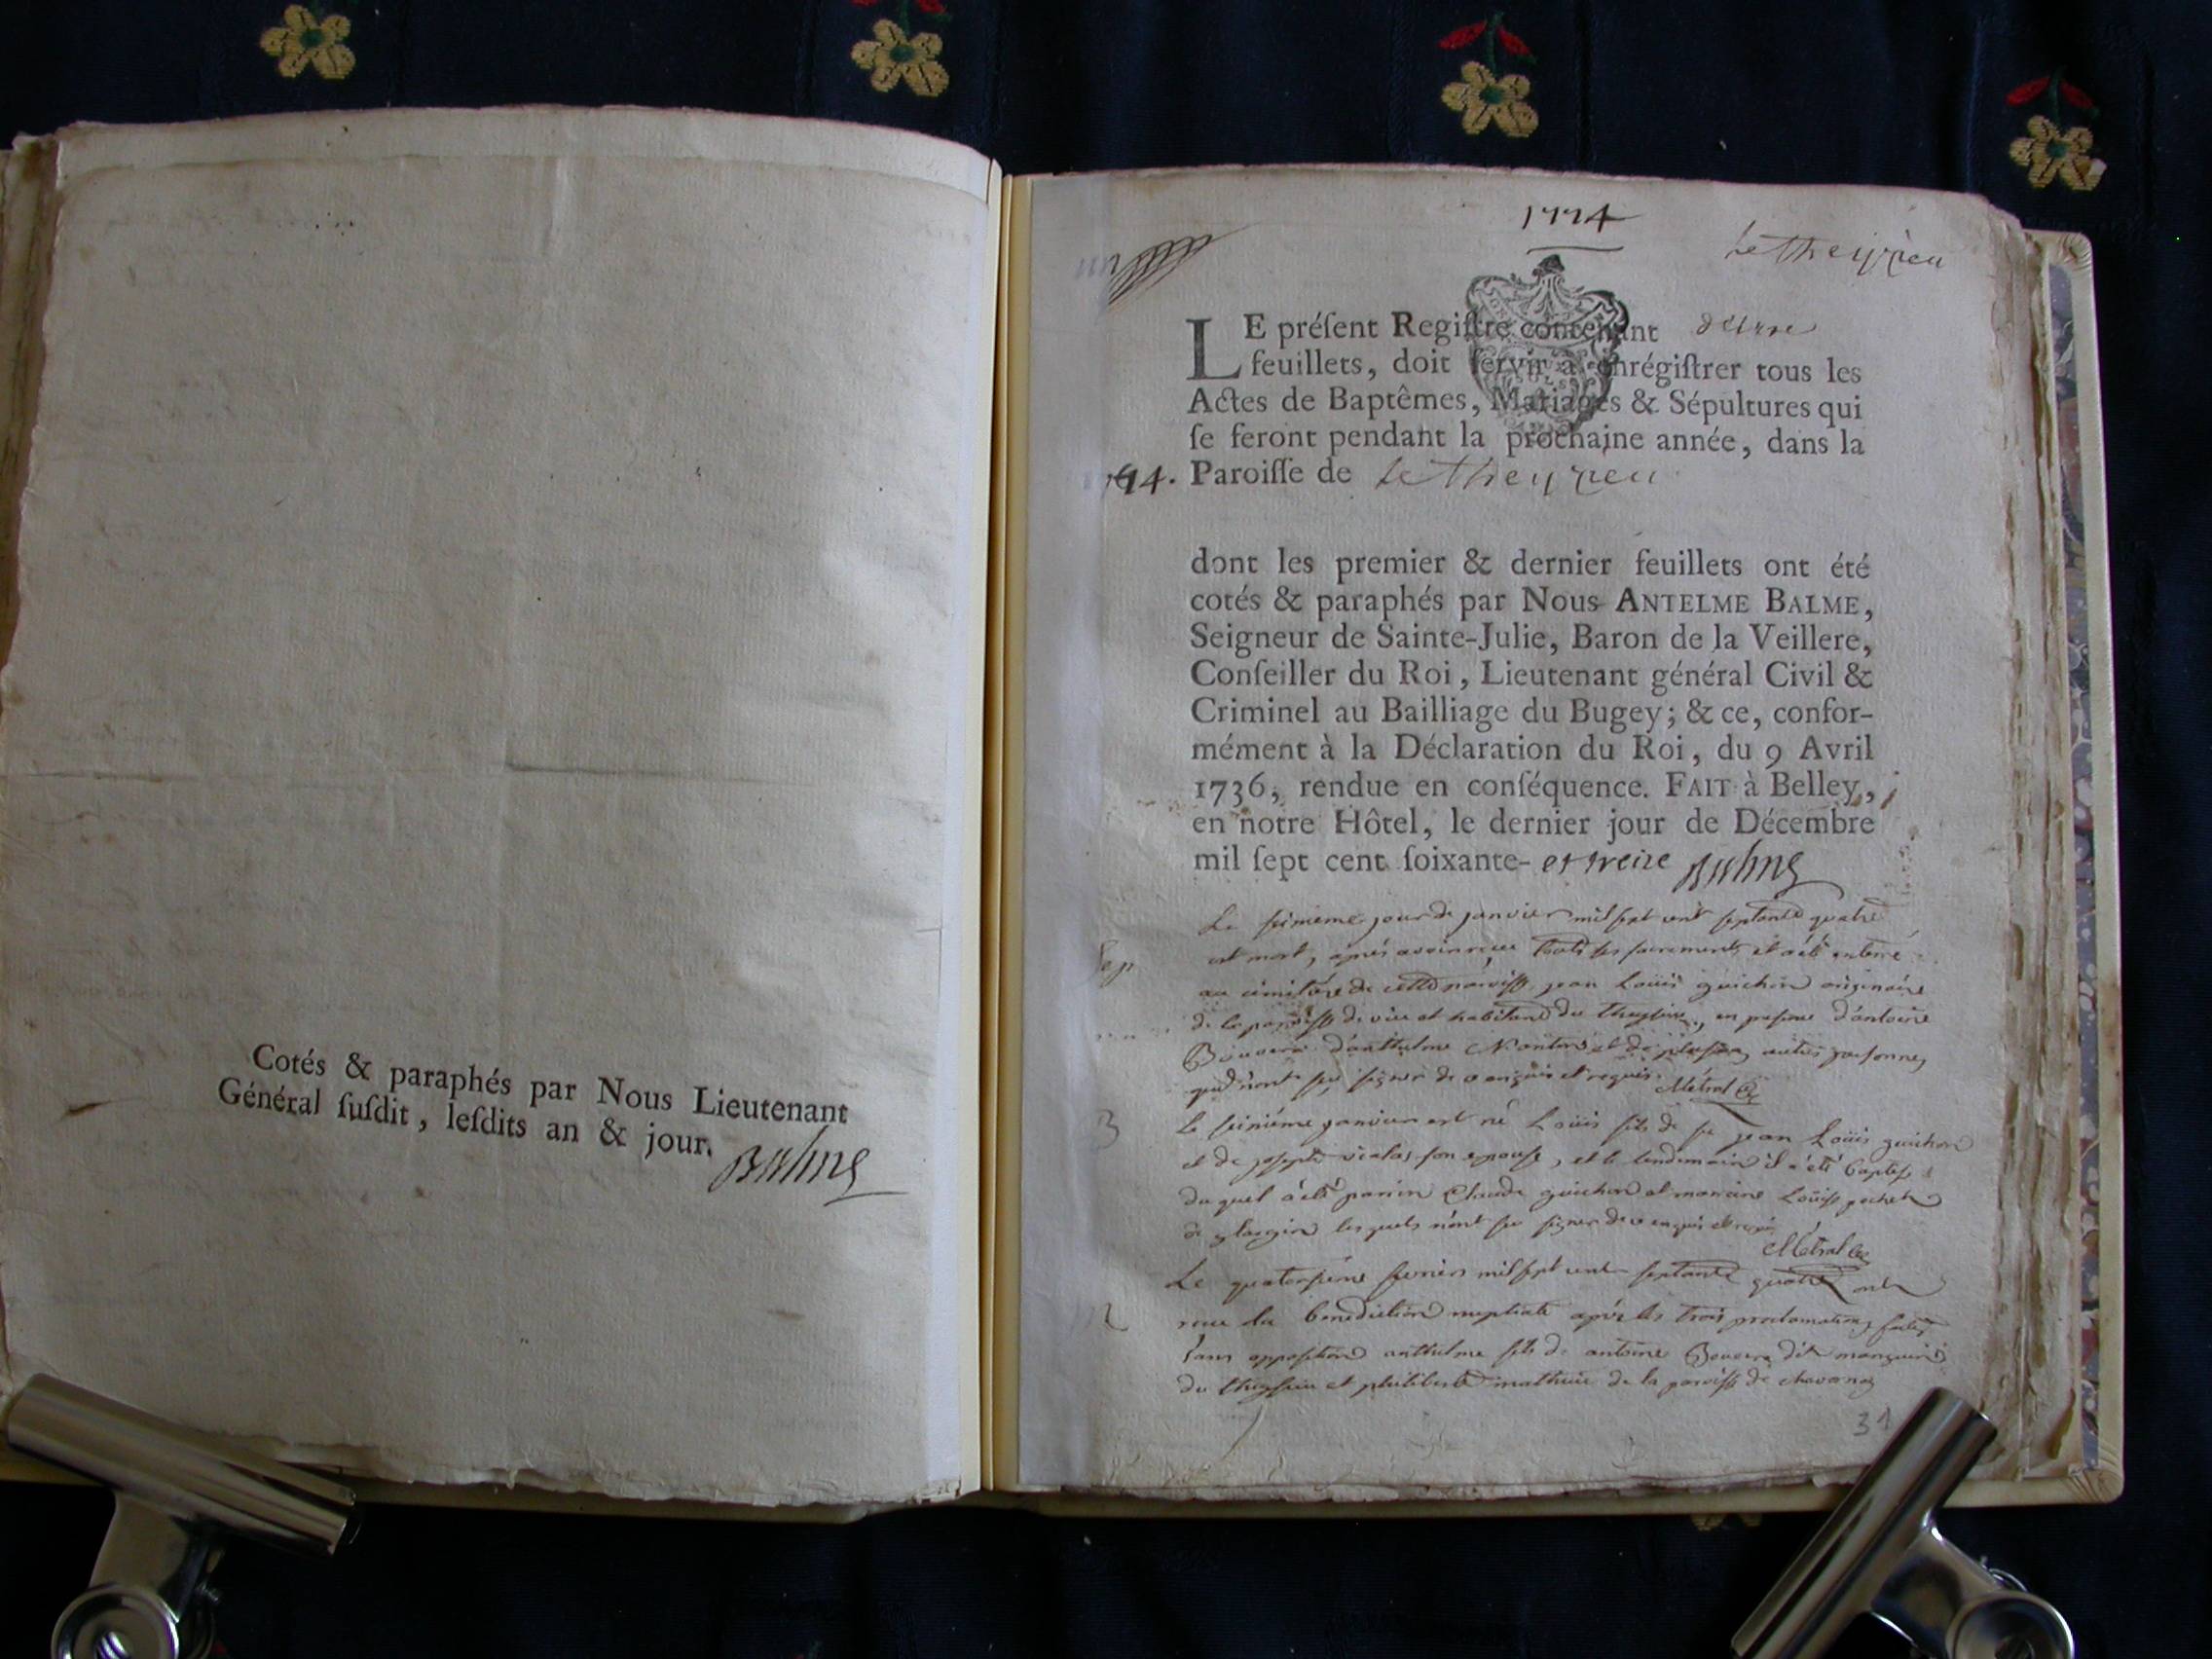 Cotés & paraphés par Nous Lieutenant
Général ſuſdit, leſdits an & jour.
Balme
1774
Le Theyzieu
LE préſent Regiſtre contenant deux
feuillets, doit ſervir à enrégiſtrer tous les
Actes de Baptêmes, Mariages & Sépultures qui
ſe feront pendant la prochaine année, dans la
1774. Paroiſſe de Le Theyzieu
dont les premier & dernier feuillets ont été
cotés & paraphés par Nous ANTELME BALME,
Seigneur de Sainte-Julie, Baron de la Veillere,
Conſeiller du Roi, Lieutenant général Civil &
Criminel au Bailliage du Bugey; & ce, confor-
mément à la Déclaration du Roi, du 9 Avril
1736, rendue en conſéquence. FAIT à Belley,
en notre Hôtel, le dernier jour de Décembre
mil ſept cent ſoixante- et treize Balme
Le jour de janvier mil sept cent septante quatre
Sep est mort, après avoir reçue touts ses sacrements et a été enterré
au cimitère de cette paroisse jean Loüis guichon originaire
de la paroisse de et habitand du, en presence d'antoine
d'anthelme et de plusieurs autres personnes
qui n'ont sçu signer de ce enquis et requis. Métral Cé
Le janvier est né Loüis fils de fu jean Loüis guichon
B et de josepte son epouse, et le lendemain il a été baptisé
du quel a été parrin Claude guichon et marrine Loüise
de lesquels n'ont sçu signer de ce enquis et requis
Métral Cé
Le quatorsieme fevrier mil sept cent septante quatre ont
M reçue la benediction nuptiale après les trois proclamations faites
sans opposition anthelme fils de antoine dit
du et philiberte de la paroisse de chavornay
31